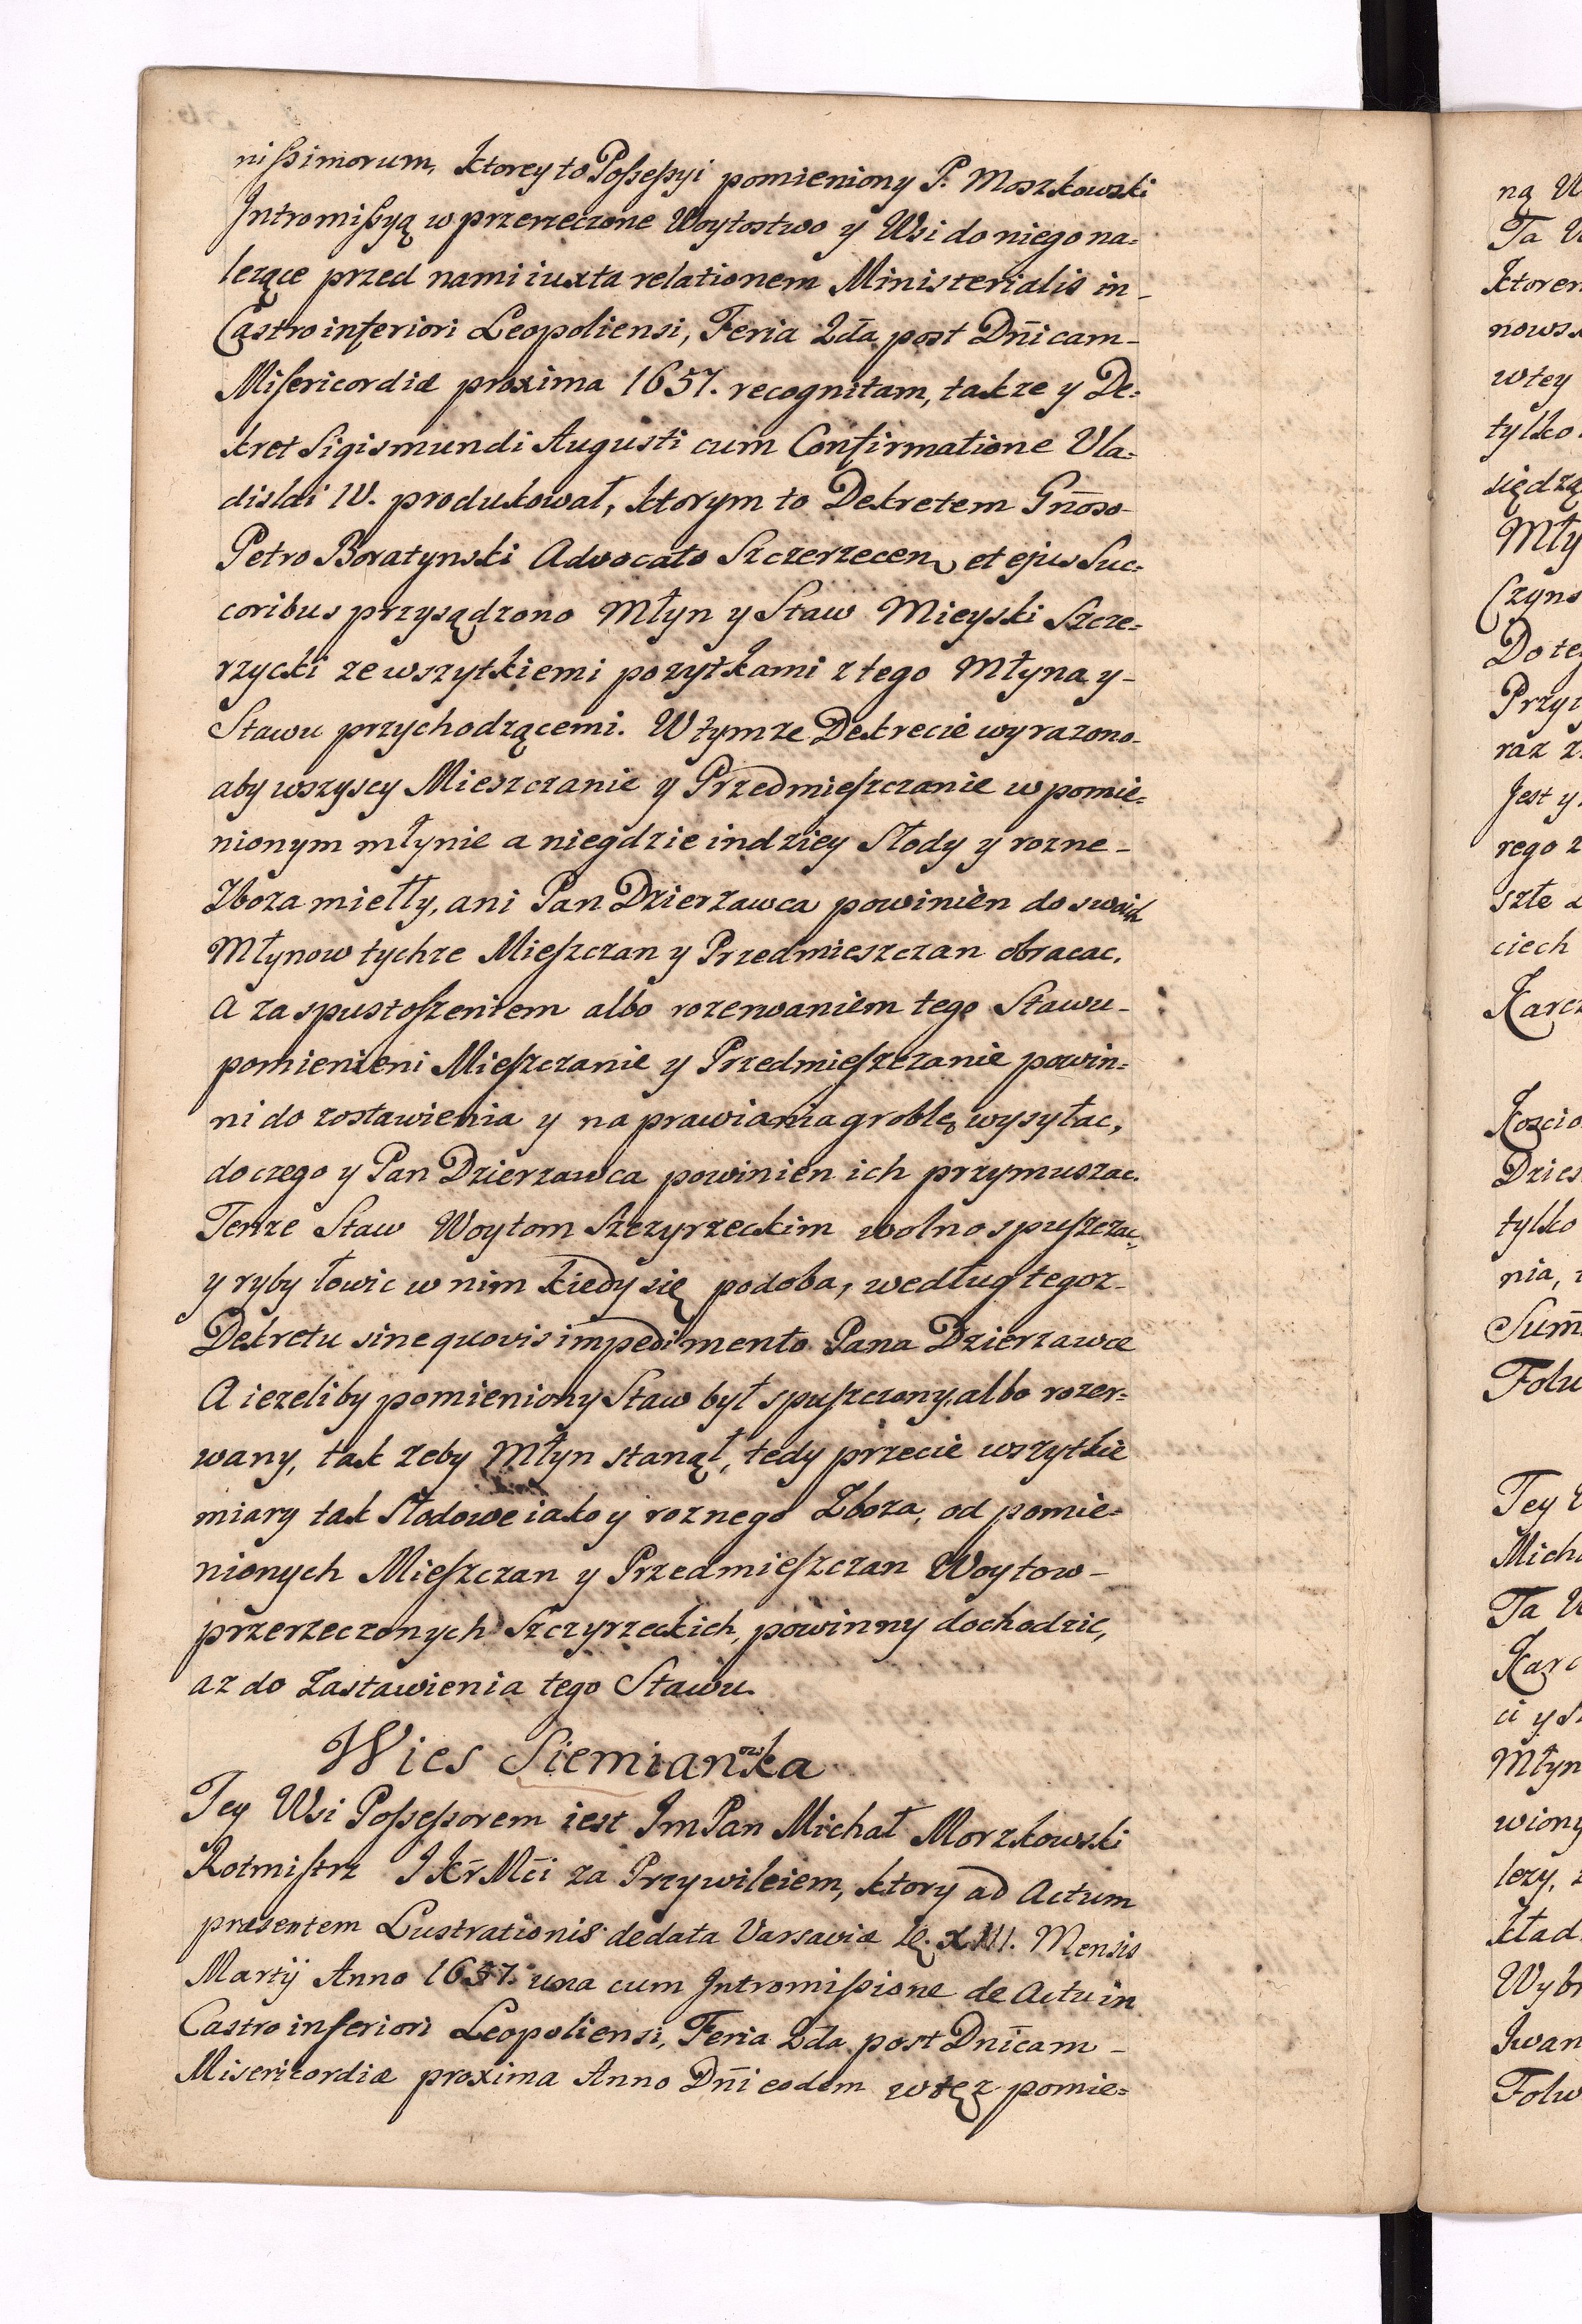 nißimorum, ktorey to Poßeßyi pomieniony P. Moszkowski
Intromißyą w przerzeczone Woytostwo y Wsi do niego na=
lezące przed nami iuxta relationem Ministerialis in-
Castro inferiori Leopoliensi, Feria 2da post Dnicam-
Misericordiæ proxima 1657. recognitam, takze y De=
kret Sigismundi Augusti cum Confirmatione Vla=
dislai IV. produkował, ktorym to Dekretem Gnoso-
Petro Boratynski Advocato Szczerzecen et ejus Suc=
coribus przysądzono Młyn y Staw Mieyski Szcze=
rzycki ze wszytkiemi pozytkami z tego Młyna y-
Stawu przychodzącemi. W tymze Dekrecie wyrazono-
aby wszyscy Mieszczanie y Przedmieszczanie w pomie=
nionym młynie a niegdzie indziey Słody y rozne-
Zboza miełły, ani Pan Dzierzawca powinien do swoich
Młynow tychze Mieszczan y Przedmieszczan obracac.
A za spustoszeniem albo rozerwaniem tego Stawu-
pomienieni Mieszczanie y Przedmieszczanie powin=
ni do zostawienia y naprawiania groblę wysyłac,
do czego y Pan Dzierzawca powinien ich przymuszac.
Tenze Staw Woytom Szczyrzeckim wolno spuszczac,
y ryby łowic w nim kiedy się podoba, według tegoz-
Dekretu sine quovis impedimento Pana Dzierzawce
A iezeliby pomieniony Staw był spuszczony, albo rozer=
wany, tak zeby Młyn stanął, tedy przecie wszytkie
miary tak Słodowe iako y roznego Zboza, od pomie=
nionych Mieszczan y Przedmieszczan Woytow-
przerzeczonych Szczyrzeckich, powinny dochodzic,
az do Zastawienia tego Stawu.
Wies Siemianowka
Tey Wsi Poßeßorem iest Jm Pan Michał Morzkowski
Rotmistrz J Kr Mci za Przywileiem, ktory ad Actum
præsentem Lustrationis de data Varsaviæ XIII. Mensis
Martij Anno 1657. una cum Intromißione de Actu in
Castro inferiori Leopoliensi, Feria 2da post Dnicam-
Misericordiæ proxima Anno Dni eodem w tęz pomie=
ną
Ta
nows
wtey
tylko
siędzą
Do te
raz
Jest y
rego
szłe
ciech
tylko
nia,
Tey
Ta
ci y
Młyn
wiony
lezy,
Iwan